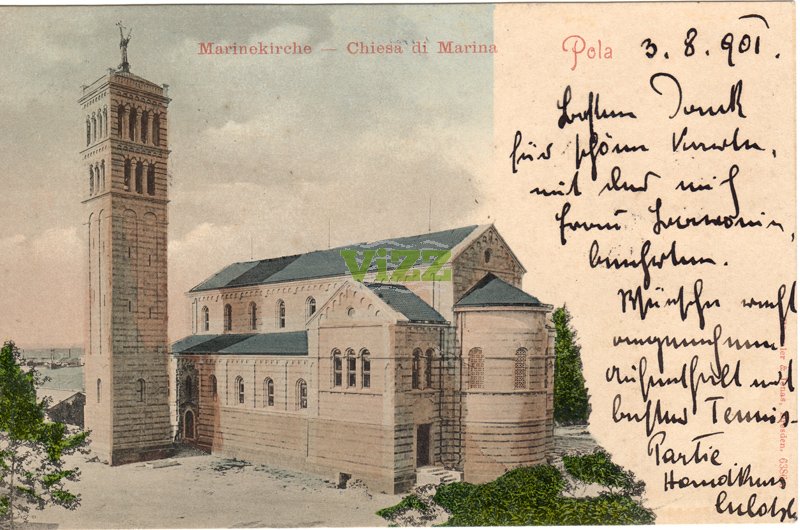 Marinekirche — Chiesa di Marina
Pola
3. 8. 901.
Vizz
besten Dank
für schöne Karte,
mit der mich
Frau Baronin,
beehrten.
Wünsche recht
angenehmen
Aufenthalt und
beste Tennis-
Partie
Handkuss